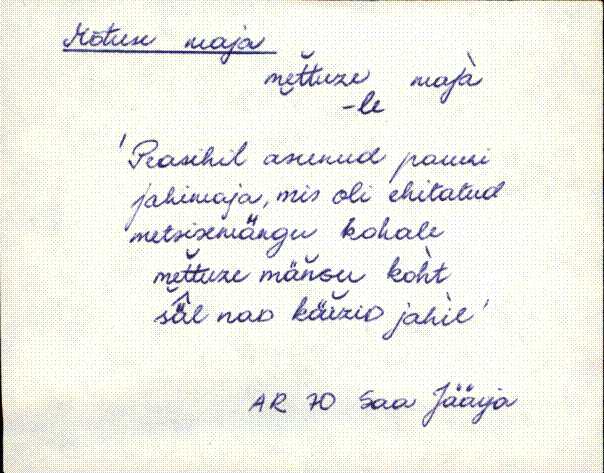 Mõtuse maja
mettuze majà
-le
'Peasihil asunud pausi
jahimaja, mis oli ehitatud
metsisemängu kohale
mettuze mängu koht
säl nao käizio jahil'
AR 70 Saa Jäärja